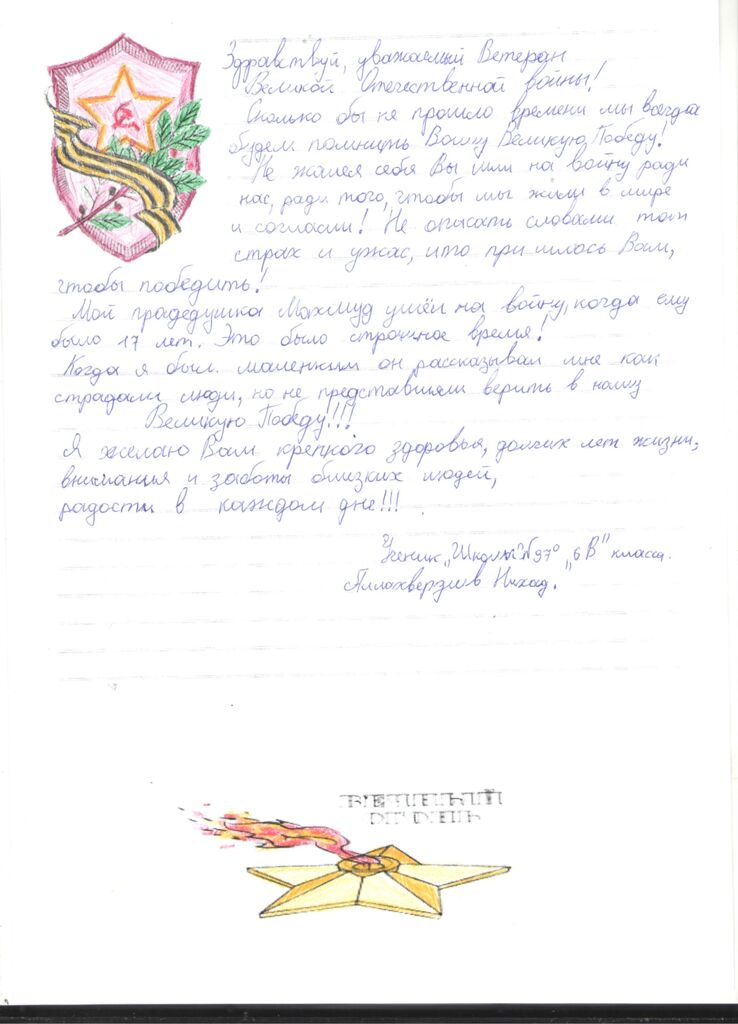 Здравствуй, уважаемый Ветеран
Великой Отечественной войны!
Сколько бы не прошло времени мы всегда
будем помнить Вашу Великую Победу!
Не жалея себя Вы шли на войну ради
нас, ради того, чтобы мы жили в мире
и согласии! Не описать словами тот
страх и ужас, что пришлось Вам,
чтобы победить!
Мой прадедушка Махмуд ушёл на войну, когда ему
было 17 лет. Это было страшное время!
Когда я был маленким он рассказывал мне как
страдали люди, но не представшяли верить в нашу
Великую Победу!!!
Я желаю Вам крепкого здоровья, долгих лет жизни,
внимания и заботы близких людей,
радости в каждом дне!!!
Ученик „Школы" №97° „6 В" класса.
Аллахвердиев Нихад.
ВЕЧНЫЙ
ОГОНЬ